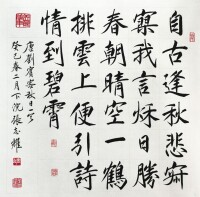 自古逢秋悲寂
寞我言秋日勝
春朝晴空一鶴
排雲上便引詩
情到碧霄
唐劉賓客秋日一
癸巳春二月下浣張志